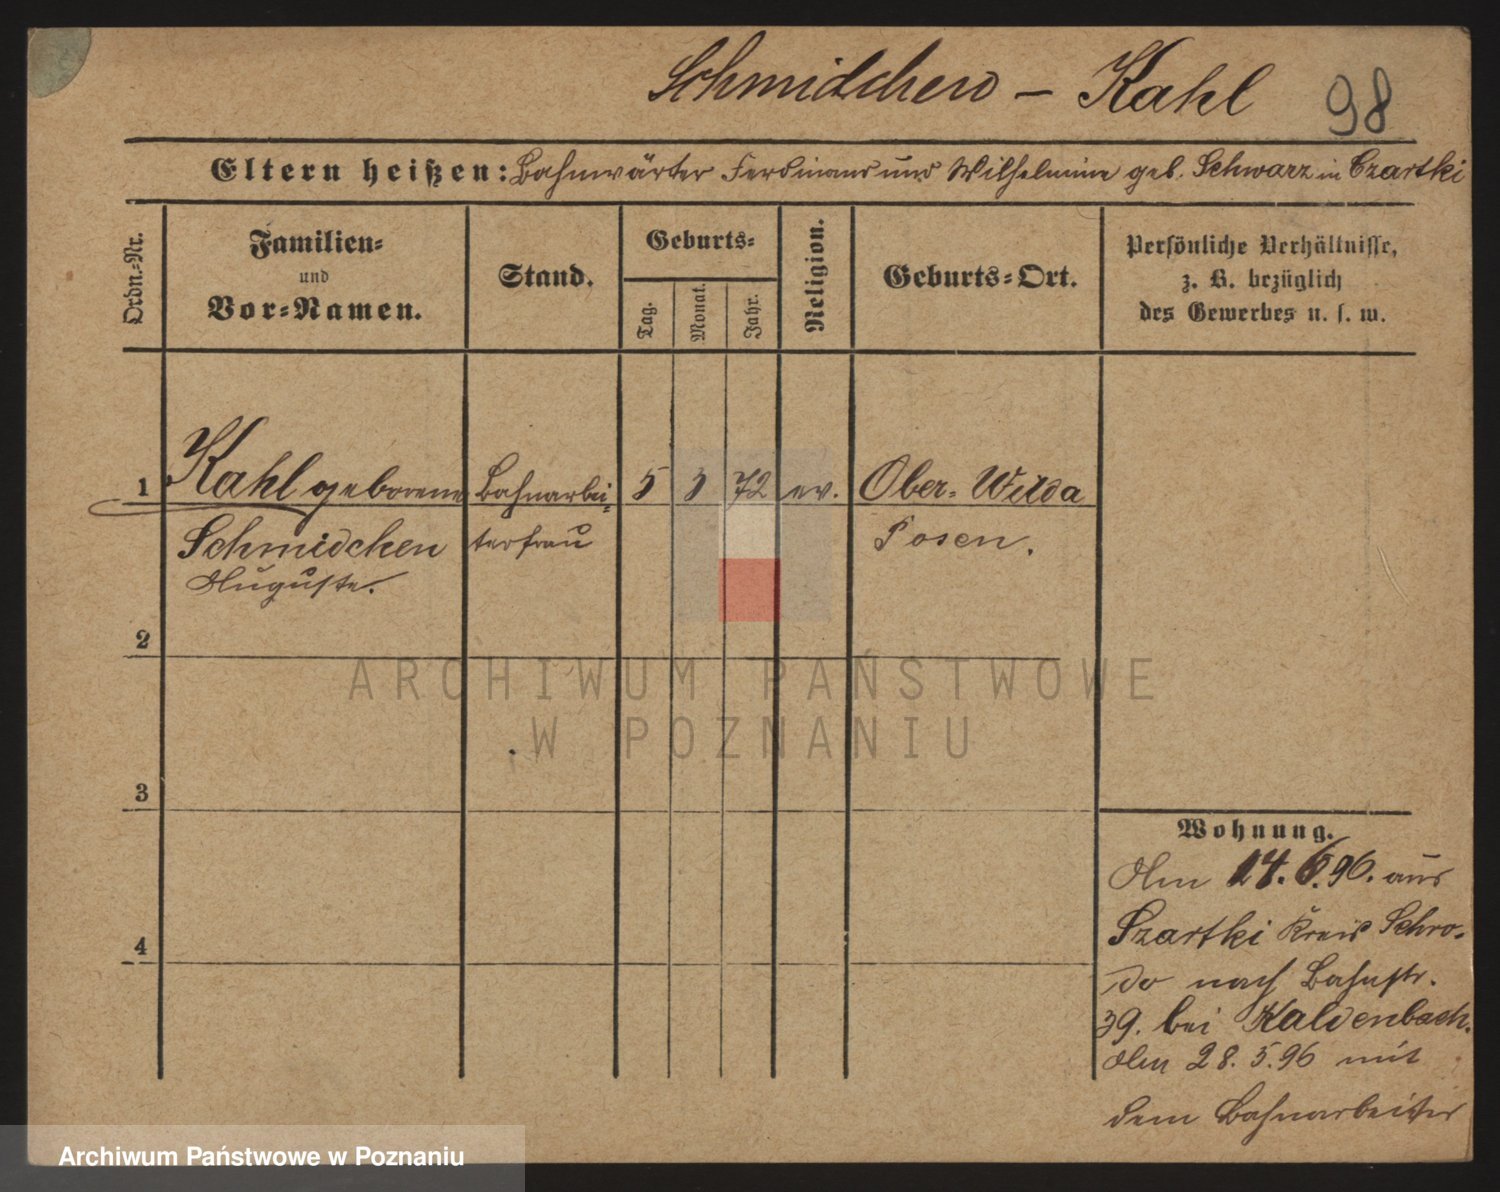 Schmidchen – Kahl 98
Eltern heißen: Bahnwärter Ferdinand und Wilhelmine geb. Schwarz in Czartki
Ordn.-Nr.
Familien-
und
Vor-Namen.
Stand.
Geburts-
Tag.
Monat.
Jahr.
Religion.
Geburts-Ort.
Persönliche Verhältnisse,
z. B. bezüglich
des Gewerbes u. s. w.
1 Kahl geborene Bahnarbei- 5 3 72 ev. Ober-Wilda
Schmidchen terfrau Posen.
Auguste.
2
3
4
Wohnung.
Am 14. 6. 96. aus
Szartki Kreis Schro-
da nach Bahnstr.
39. bei Kaldenbach.
Am 28. 5. 96 mit
dem Bahnarbeiter
ARCHIWUM PAŃSTWOWE
W POZNANIU
Archiwum Państwowe w Poznaniu